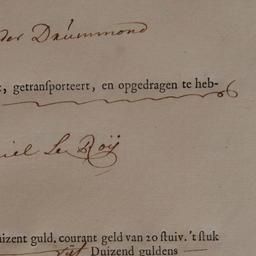 der Drummond
, getransporteert, en opgedragen te heb-
iel Le Roÿ
uizent guld. courant geld van 20 ſtuiv. 't ſtuk
vijf Duizend guldens